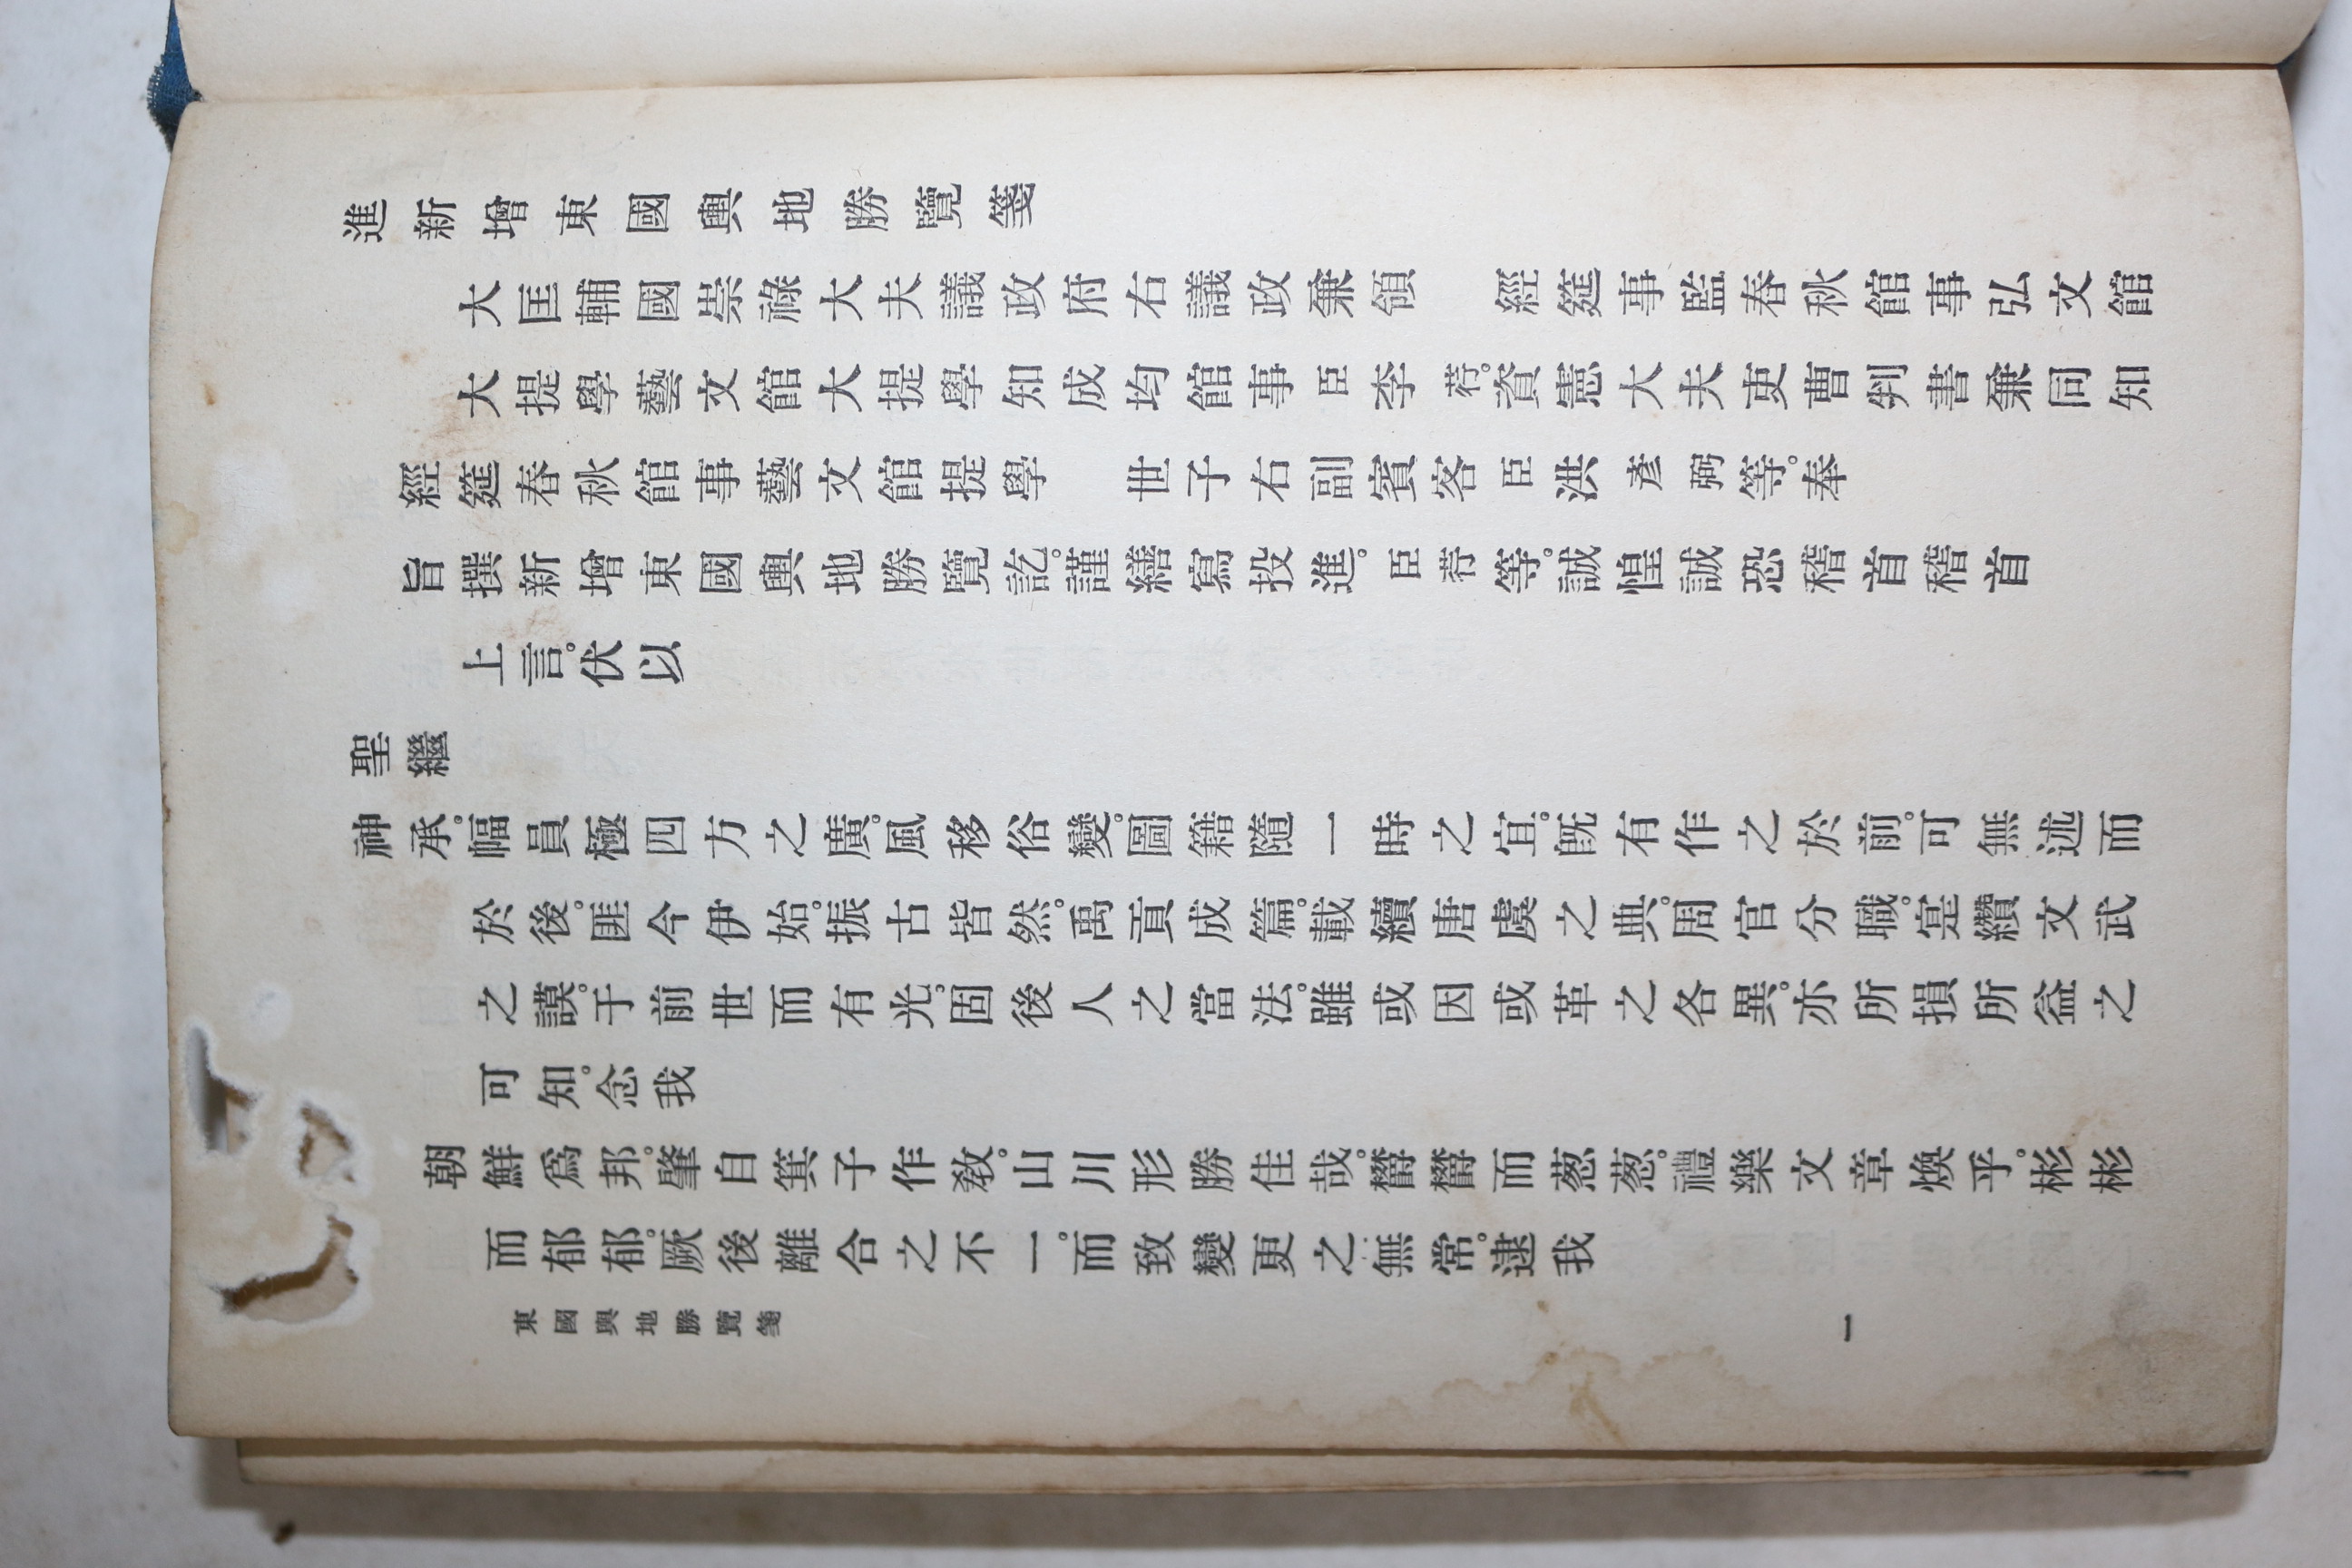 進新增東國輿地勝覽箋
大匡輔國崇祿大夫議政府右議政兼領　經筵事監春秋館事弘文館
大提學藝文館大提學知成均館事臣李荇。資憲大夫吏曹判書兼同知
經筵春秋館事藝文館提學　世子右副賓客臣洪彥弼等。奉
旨撰新增東國輿地勝覽訖。謹繕寫投進。臣荇等。誠惶誠恐稽首稽首
上言。伏以
聖繼
神承。幅員極四方之廣。風移俗變。圖籍隨一時之宜。旣有作之於前。可無述而
於後。匪今伊始。振古皆然。禹貢成篇。載續唐虞之典。周官分職。寔纘文武
之謨。于前世而有光。固後人之當法。雖或因或革之各異。亦所損所益之
可知。念我
朝鮮爲邦。肇自箕子作敎。山川形勝佳哉。欝欝而葱葱。禮樂文章煥乎。彬彬
而郁郁。厥後離合之不一。而致變更之無常。逮我
東國輿地勝覽箋
一